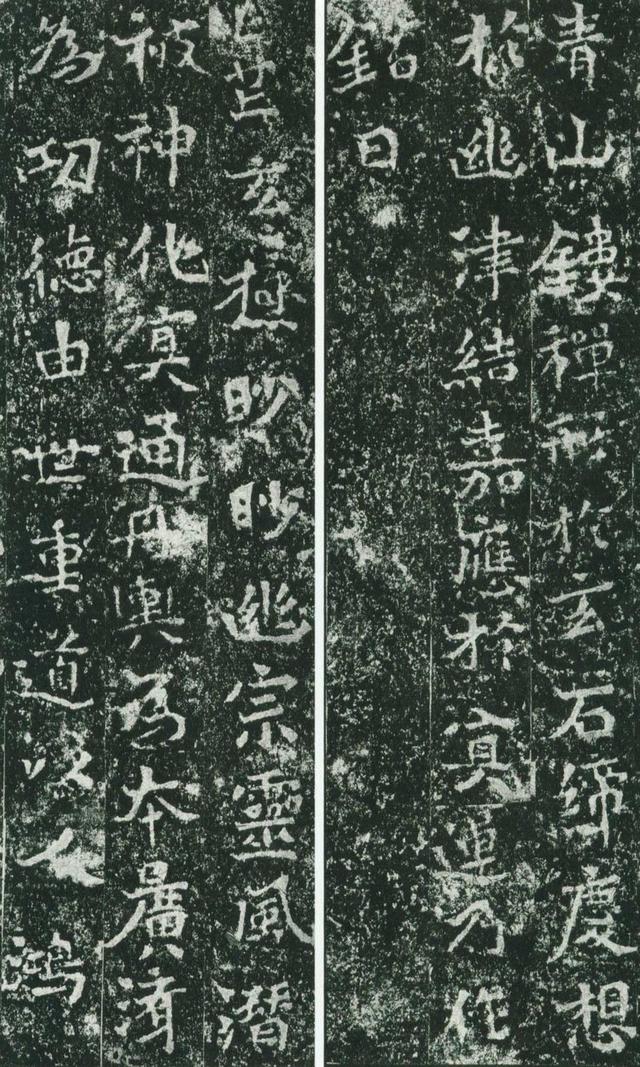 青山鏤禪形於玄石締慶想
於幽津結嘉應於冥運乃作
銘曰
芒芒玄極眇眇幽宗靈風潛
被神化冥通舟輿為本廣濟
為功德由世重道以人鴻